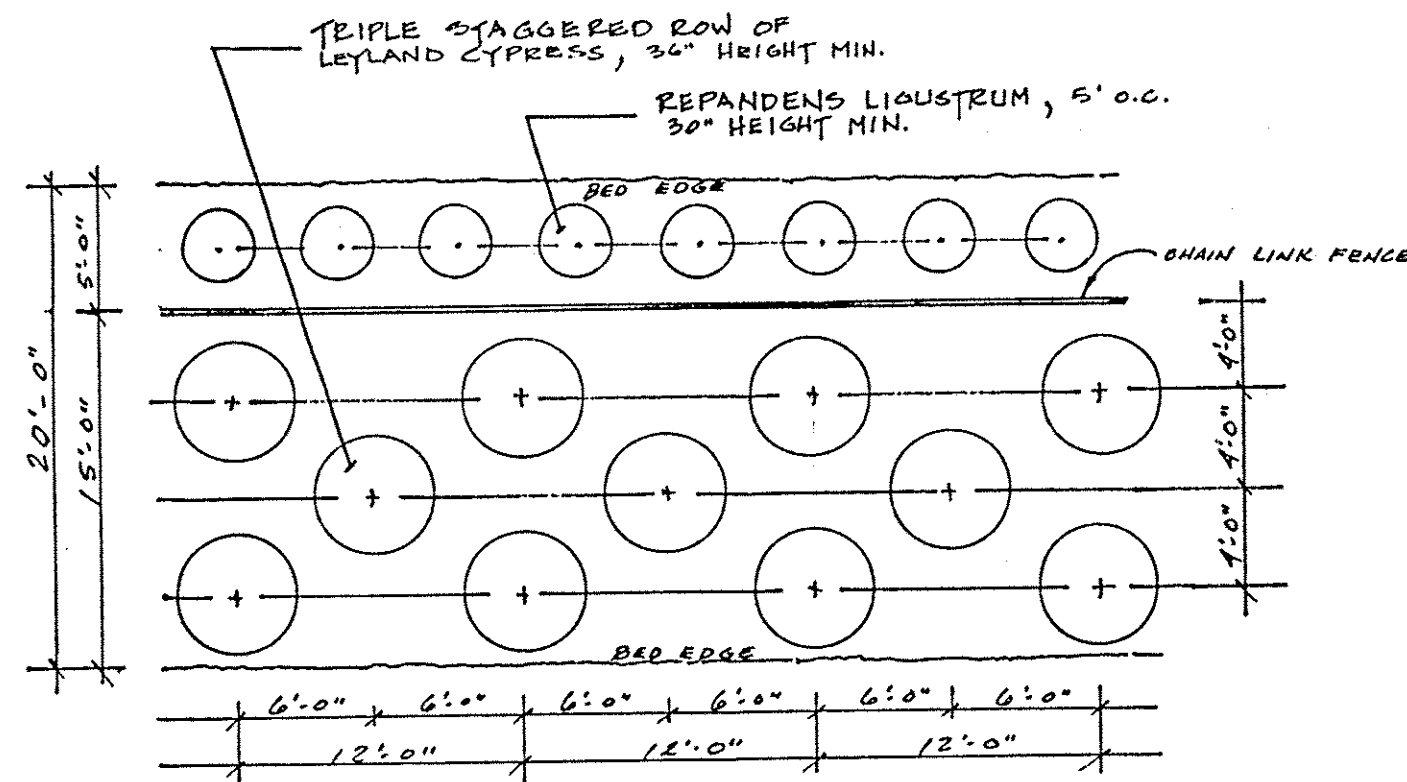 TRIPLE STAGGERED ROW OF
LEYLAND CYPRESS, 36" HEIGHT MIN.
REPANDENS LIGUSTRUM, 5' O.C.
30" HEIGHT MIN.
BED EDGE
CHAIN LINK FENCE
5'-0"
20'-0"
15'-0"
4'-0"
4'-0"
4'-0"
BED EDGE
6'-0" 6'-0" 6'-0" 6'-0" 6'-0" 6'-0"
12'-0" 12'-0" 12'-0"